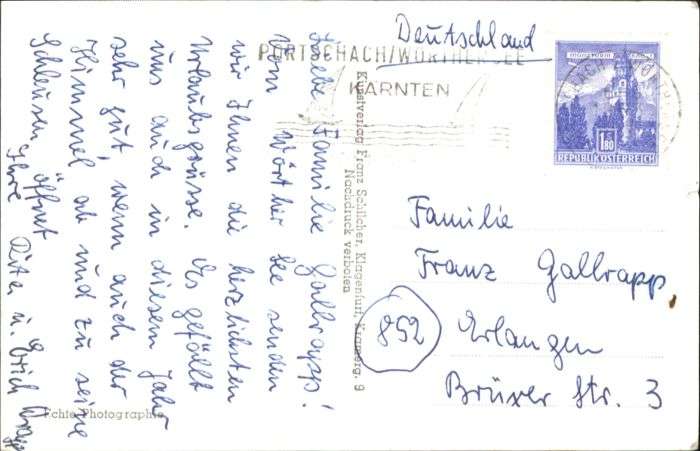 Deutschland
PÖRTSCHACH/WÖRTHERSEE
KÄRNTEN
1.80
REPUBLIK ÖSTERREICH
Liebe Familie Gallrapp!
Vom Wörther See senden
wir Ihnen die herzlichsten
Urlaubsgrüsse. Es gefällt
uns auch in diesem Jahr
sehr gut, wenn auch der
Himmel ab und zu seine
Schleusen öffnet
Ihre Rita u. Erich
Kunstverlag Franz Schilcher, Klagenfurt, 9
Nachdruck verboten
Familie
Franz Gallrapp
852
Erlangen
Brüxer Str. 3
Echte Photographie